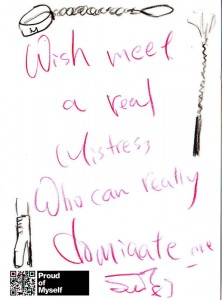 Wish meet
a real
Mistress
Who can really
dominate me
Proud
of
Myself